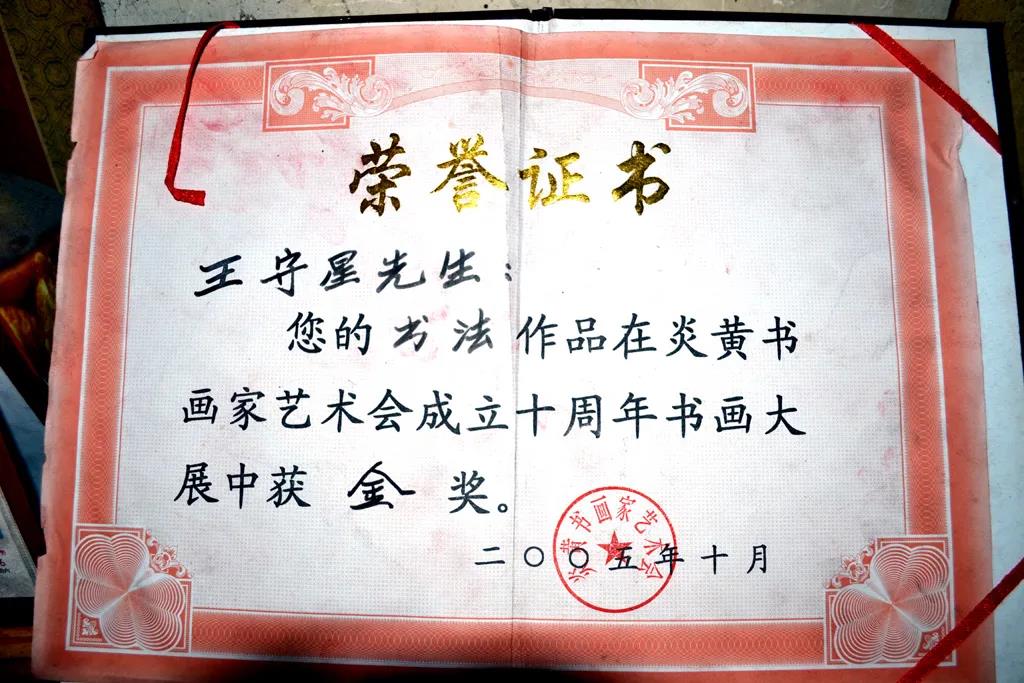 荣誉证书
王守星先生:
您的书法作品在炎黄书
画家艺术会成立十周年书画大
展中获 金 奖。
炎黄书画家艺术会
二〇〇五年十月